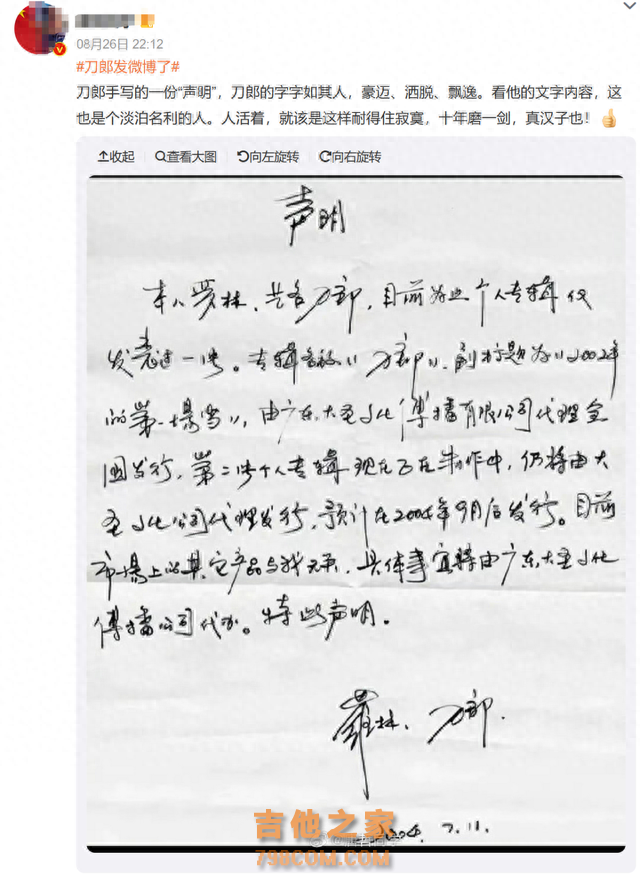 08月26日 22:12
#刀郎发微博了#
刀郎手写的一份“声明”，刀郎的字字如其人，豪迈、洒脱、飘逸。看他的文字内容，这
也是个淡泊名利的人。人活着，就该是这样耐得住寂寞，十年磨一剑，真汉子也！
收起 查看大图 向左旋转 向右旋转
声明
本人罗林，艺名刀郎，目前为止个人专辑仅
发表过一张。专辑名称《刀郎》，副标题为《2002年
的第一场雪》，由广东大圣文化传播有限公司代理全
国发行，第二张个人专辑现在正在制作中，仍将由大
圣文化公司代理发行，预计在2004年9月后发行。目前
市场上的其它产品与我无关，具体事宜将由广东大圣文化
传播公司代办。特此声明。
羅林、刀郎.
2004. 7. 11.
吉他之家
798COM.COM